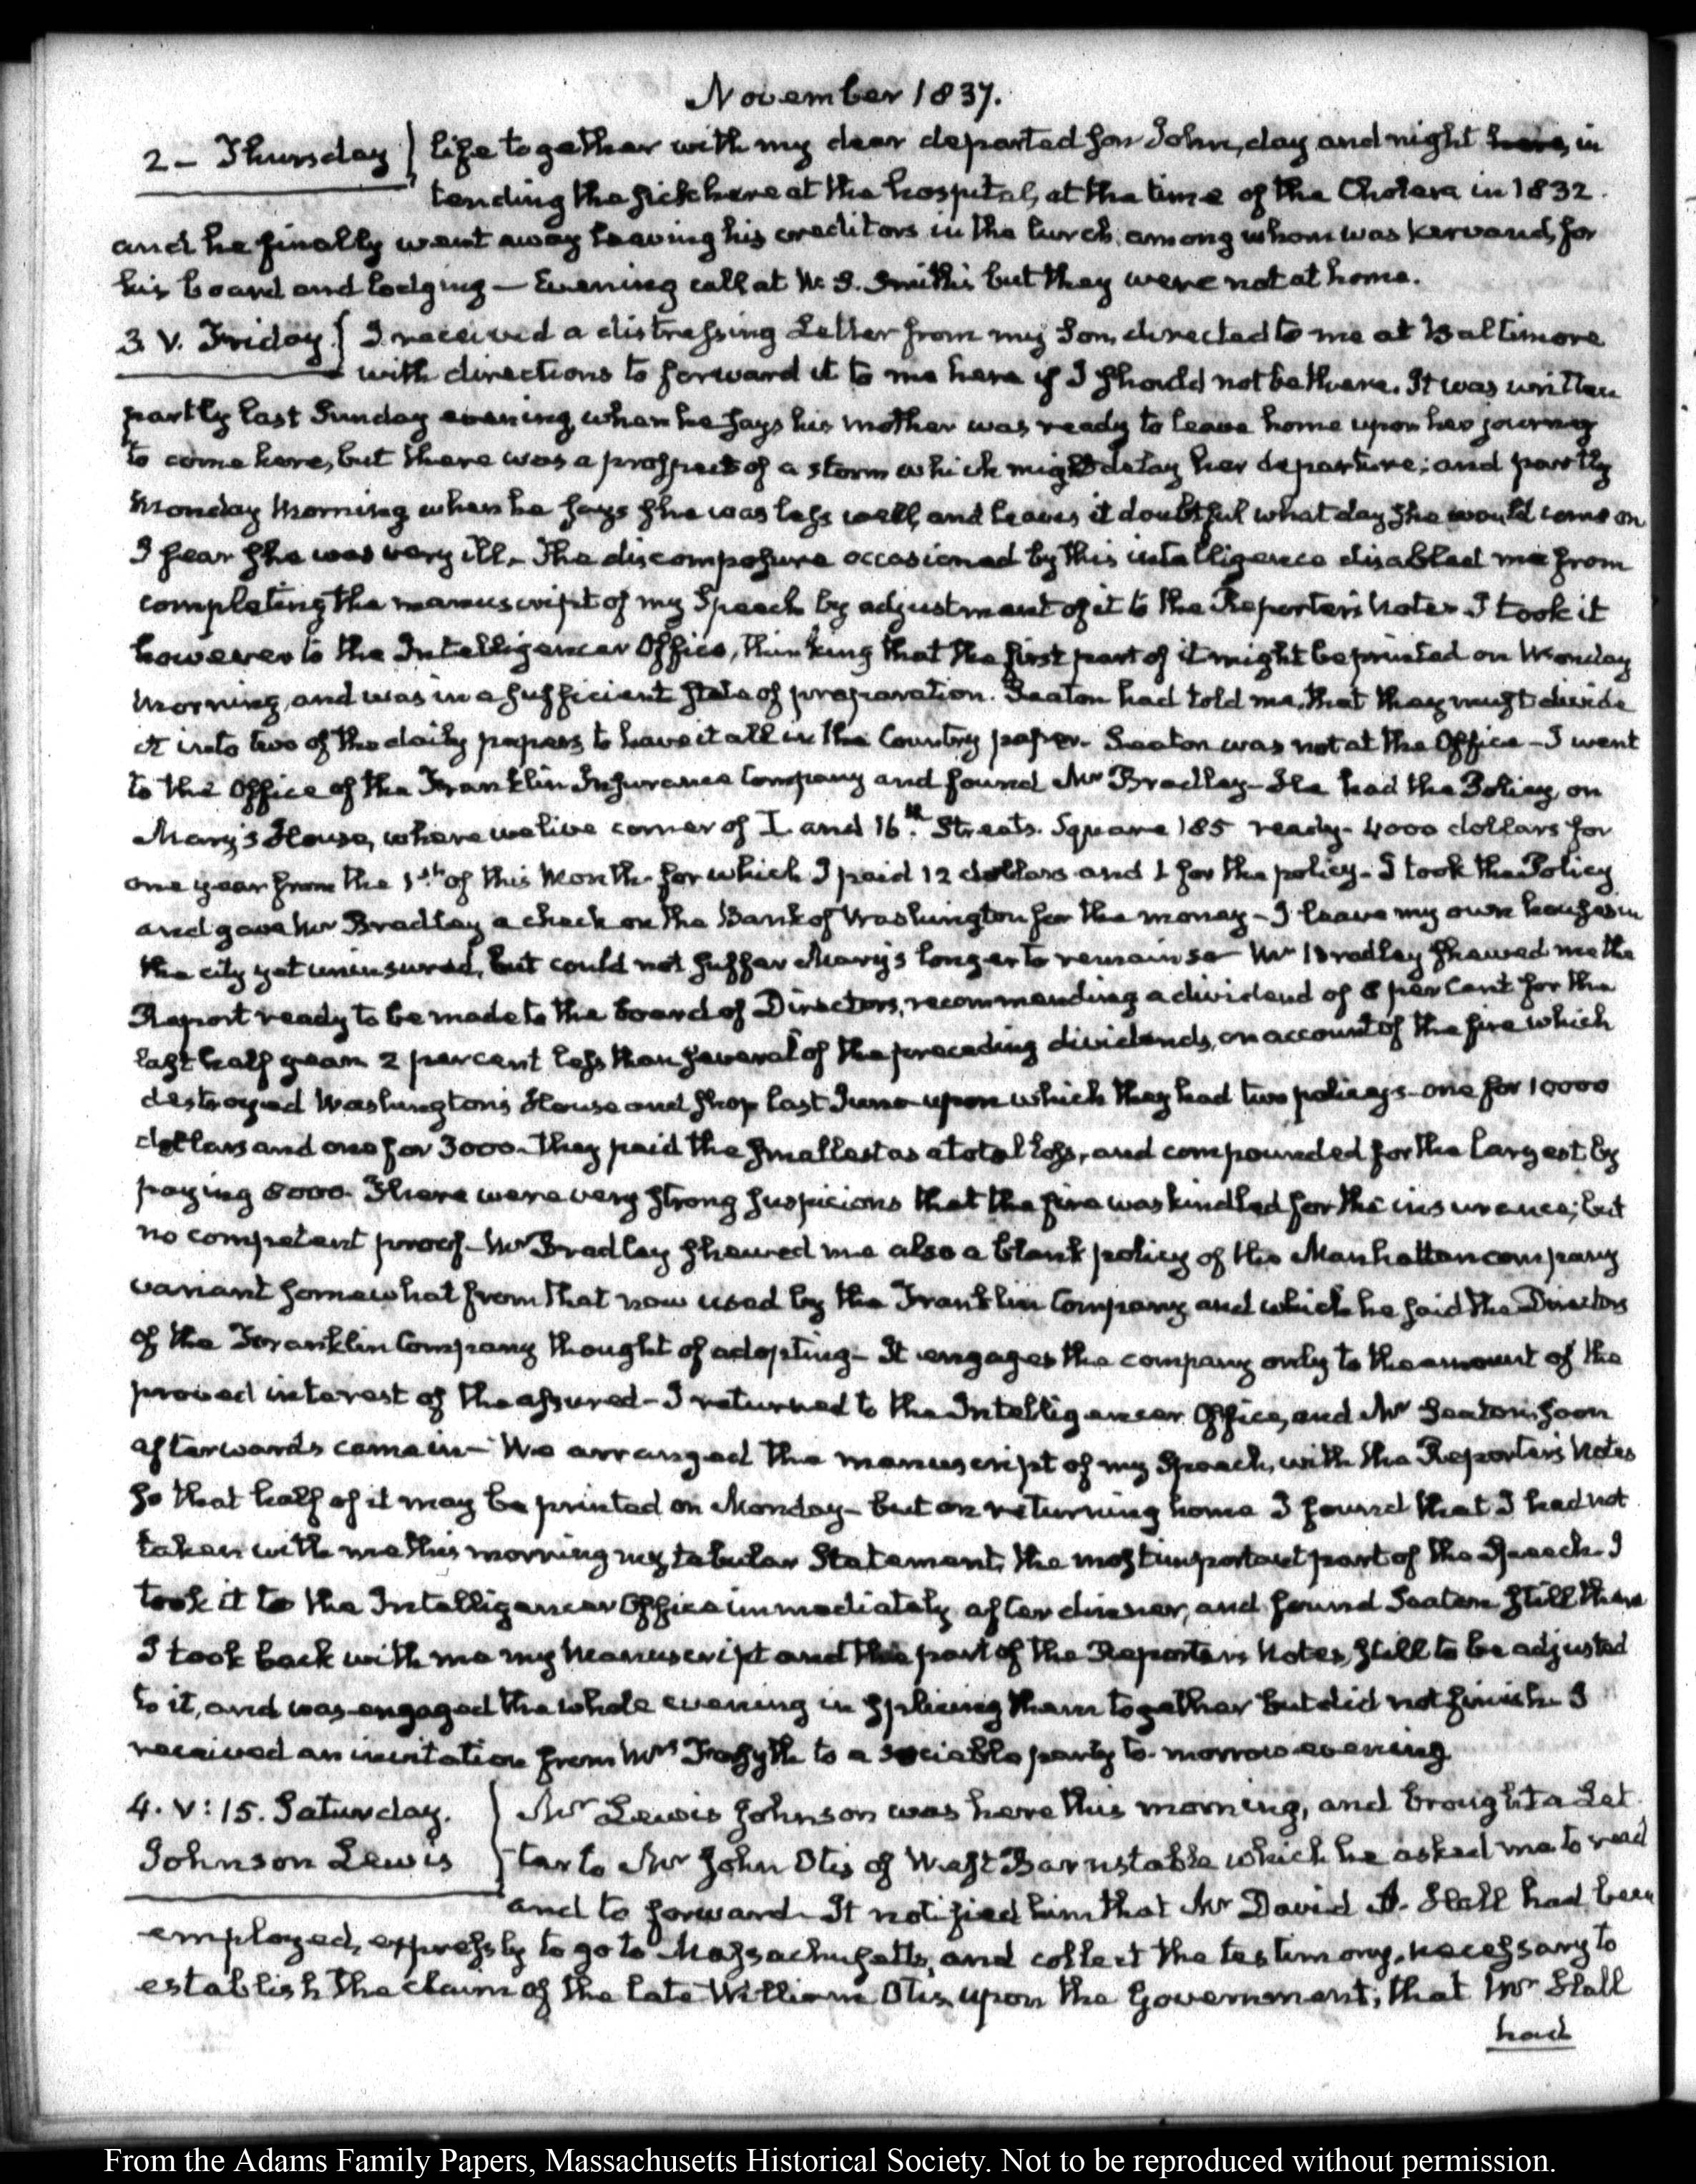 November 1837.
2 – Thursday } life together with my dear departed son John, day and night here, in
tending the sick here at the hospital, at the time of the Cholera in 1832.
and he finally went away leaving his creditors in the lurch, among whom was Kervand, for
his board and lodging — Evening call at W. S. Smith's but they were not at home.
3. V. Friday. } I received a distressing Letter from my Son, directed to me at Baltimore
with directions to forward it to me here if I should not be there. It was written
partly last Sunday evening, when he says his mother was ready to leave home upon her journey
to come here, but there was a prospect of a storm which might delay her departure; and partly
Monday Morning when he says she was less well, and leaves it doubtful what day she would come on
I fear she was very ill. The discomposure occasioned by this intelligence disabled me from
completing the manuscript of my Speech by adjustment of it to the Reporter's Notes. I took it
however to the Intelligencer Office, thinking that the first part of it might be printed on Monday
Morning, and was in a sufficient state of preparation. Seaton had told me, that they must divide
it into two of the daily papers to have it all in the Country paper. Seaton was not at the Office – I went
to the Office of the Franklin Insurance Company and found Mr Bradley – He had the Policy, on
Mary's House, where we live corner of I. and 16th Streets. Square 185 ready – 4000 dollars for
one year from the 1st of this Month for which I paid 12 dollars and 1 for the policy – I took the Policy
and gave Mr Bradley a check on the Bank of Washington for the money – I leave my own houses in
the city yet uninsured, but could not suffer Mary's longer to remain so – Mr Bradley shewed me the
Report ready to be made to the board of Directors, recommending a dividend of 8 per Cent for the
last half year. 2 percent less than several of the preceding dividends, on account of the fire which
destroyed Washington's House and shop last June upon which they had two policeys – one for 10000
dollars and one for 3000. They paid the smallest as a total loss, and compounded for the largest by
paying 8000. There were very strong suspicions that the fire was kindled for the insurance; but
no competent proof – Mr Bradley shewed me also a blank policy of the Manhattan company
variant somewhat from that now used by the Franklin Company and which he said the Directors
of the Franklin Company thought of adopting – It engages the company only to the amount of the
proved interest of the assured – I returned to the Intelligencer Office, and Mr Seaton soon
afterwards came in – We arranged the manuscript of my Speech, with the Reporter's Notes
so that half of it may be printed on Monday – but on returning home I found that I had not
taken with me this morning my tabular Statement, the most important part of the Speech. I
took it to the Intelligencer Office immediately after dinner, and found Seaton still there
I took back with me my Manuscript and the part of the Reporter's Notes, still to be adjusted
to it, and was engaged the whole evening in splicing them together but did not finish. I
received an invitation from Mrs Forsyth to a sociable party to-morrow evening.
4. V: 15. Saturday. } Mr Lewis Johnson was here this morning, and brought a Let-
Johnson Lewis } ter to Mr John Otis of West Barnstable which he asked me to read
and to forward. It notified him that Mr David A. Hall had been
employed, expressly to go to Massachusetts, and collect the testimony, necessary to
establish the claim of the late William Otis, upon the Government; that Mr Hall
had
From the Adams Family Papers, Massachusetts Historical Society. Not to be reproduced without permission.